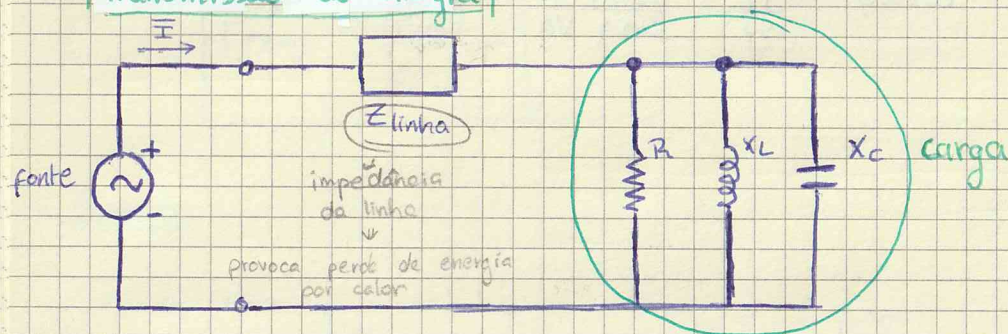 I
Z linha
impedância
da linha
provoca perda de energia
por calor
fonte
+
-
R
XL
XC
carga